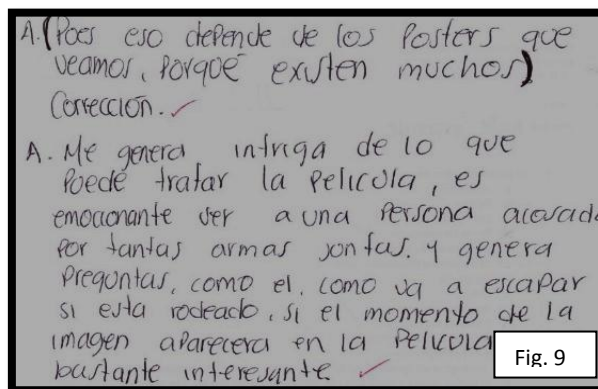 A. (Poes eso depende de los Posters que
veamos, Porqué existen muchos)
Corrección.
A. Me genera intriga de lo que
Poede tratar la Pelicola, es
emocionante ver a una Persona acosada
por tantas armas jontas. y genera
Pregontas, como el. como va a escapar
si esta rodeado, si el momento de la
imagen aparecera en la Pelicola
bastante interesante.
Fig. 9